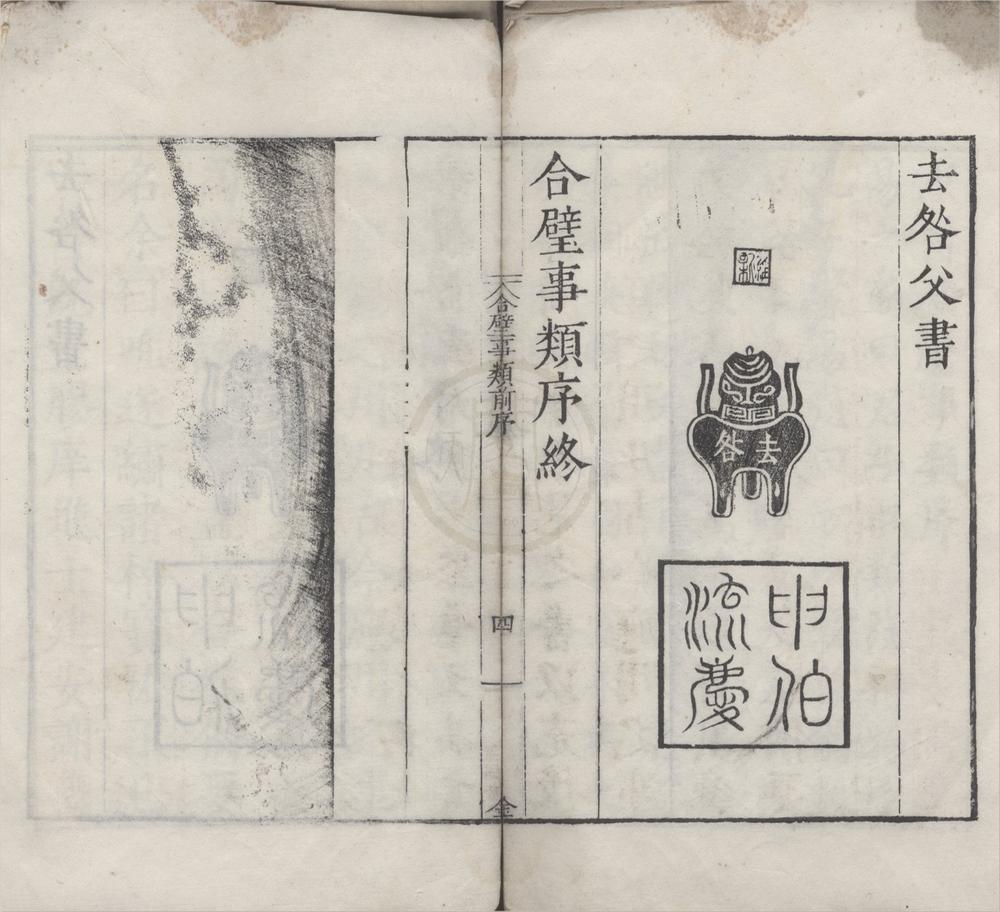 去咎父書
維新
去咎
申伯
流慶
合璧事類序終
合璧事類前序
四
金